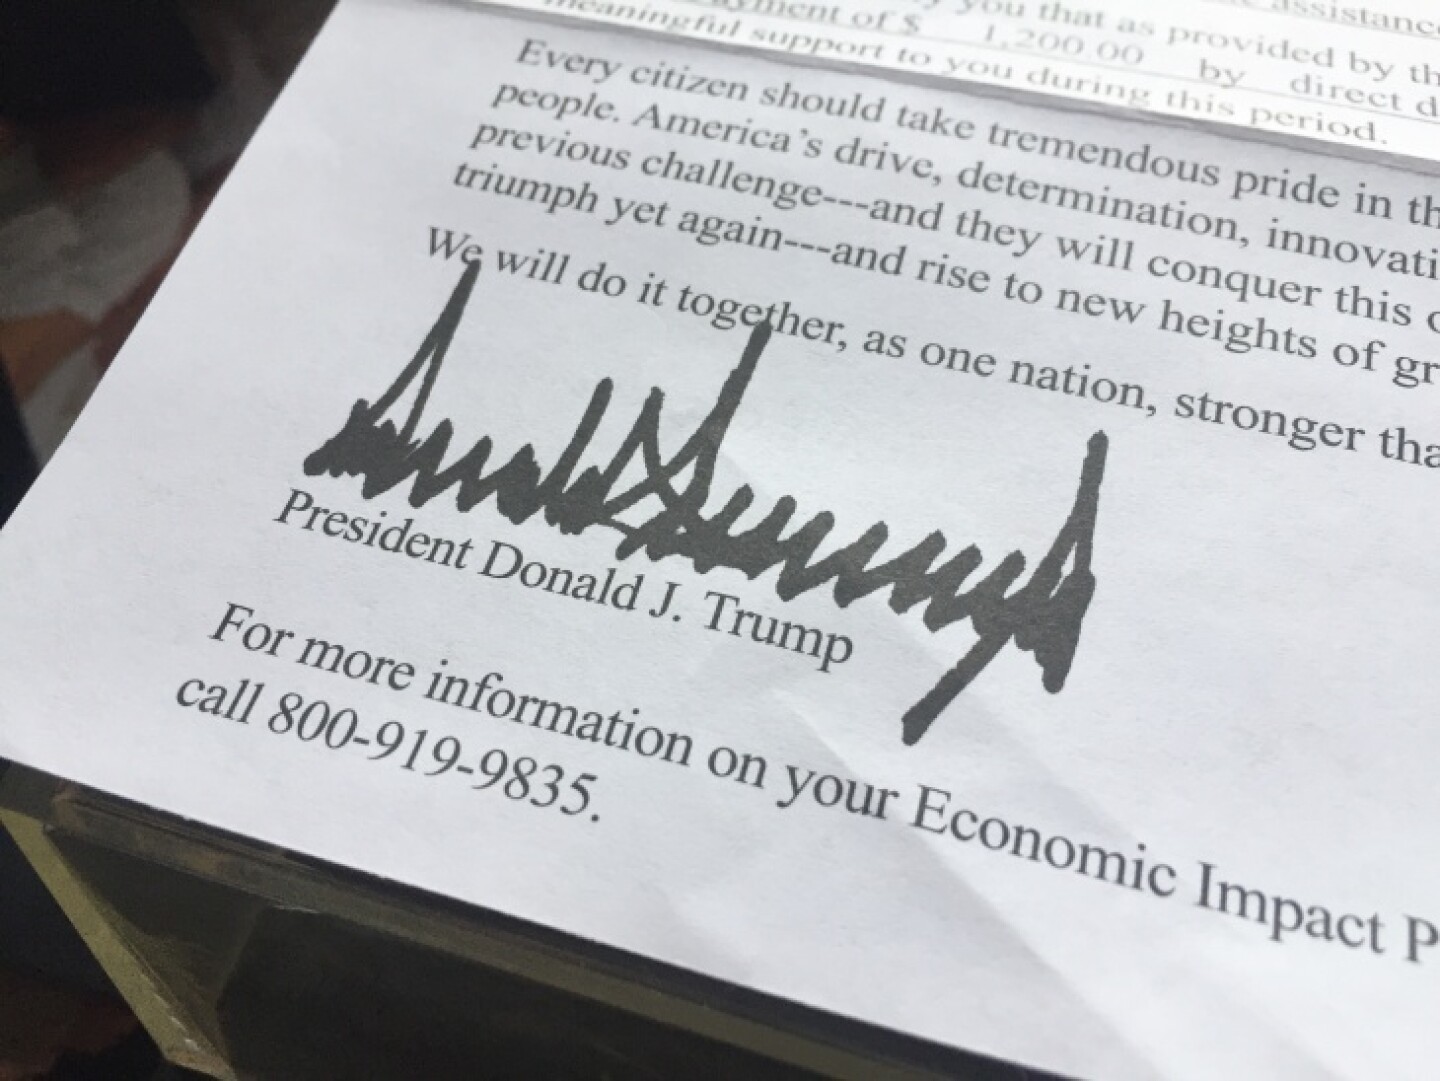 assistance
you that as provided by th
payment of $ 1,200.00 by direct d
meaningful support to you during this period.
Every citizen should take tremendous pride in th
people. America's drive, determination, innovati
previous challenge---and they will conquer this
triumph yet again---and rise to new heights of gr
We will do it together, as one nation, stronger tha
President Donald J. Trump
For more information on your Economic Impact P
call 800-919-9835.